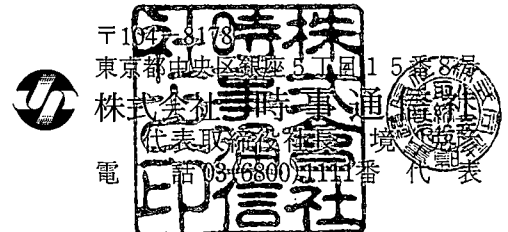 〒104-8178
東京都中央区銀座5丁目15番8号
株式会社 時事通信社
代表取締役社長 境
電 話 03(6800)1111番 代 表
株式会社
時事通信
社印